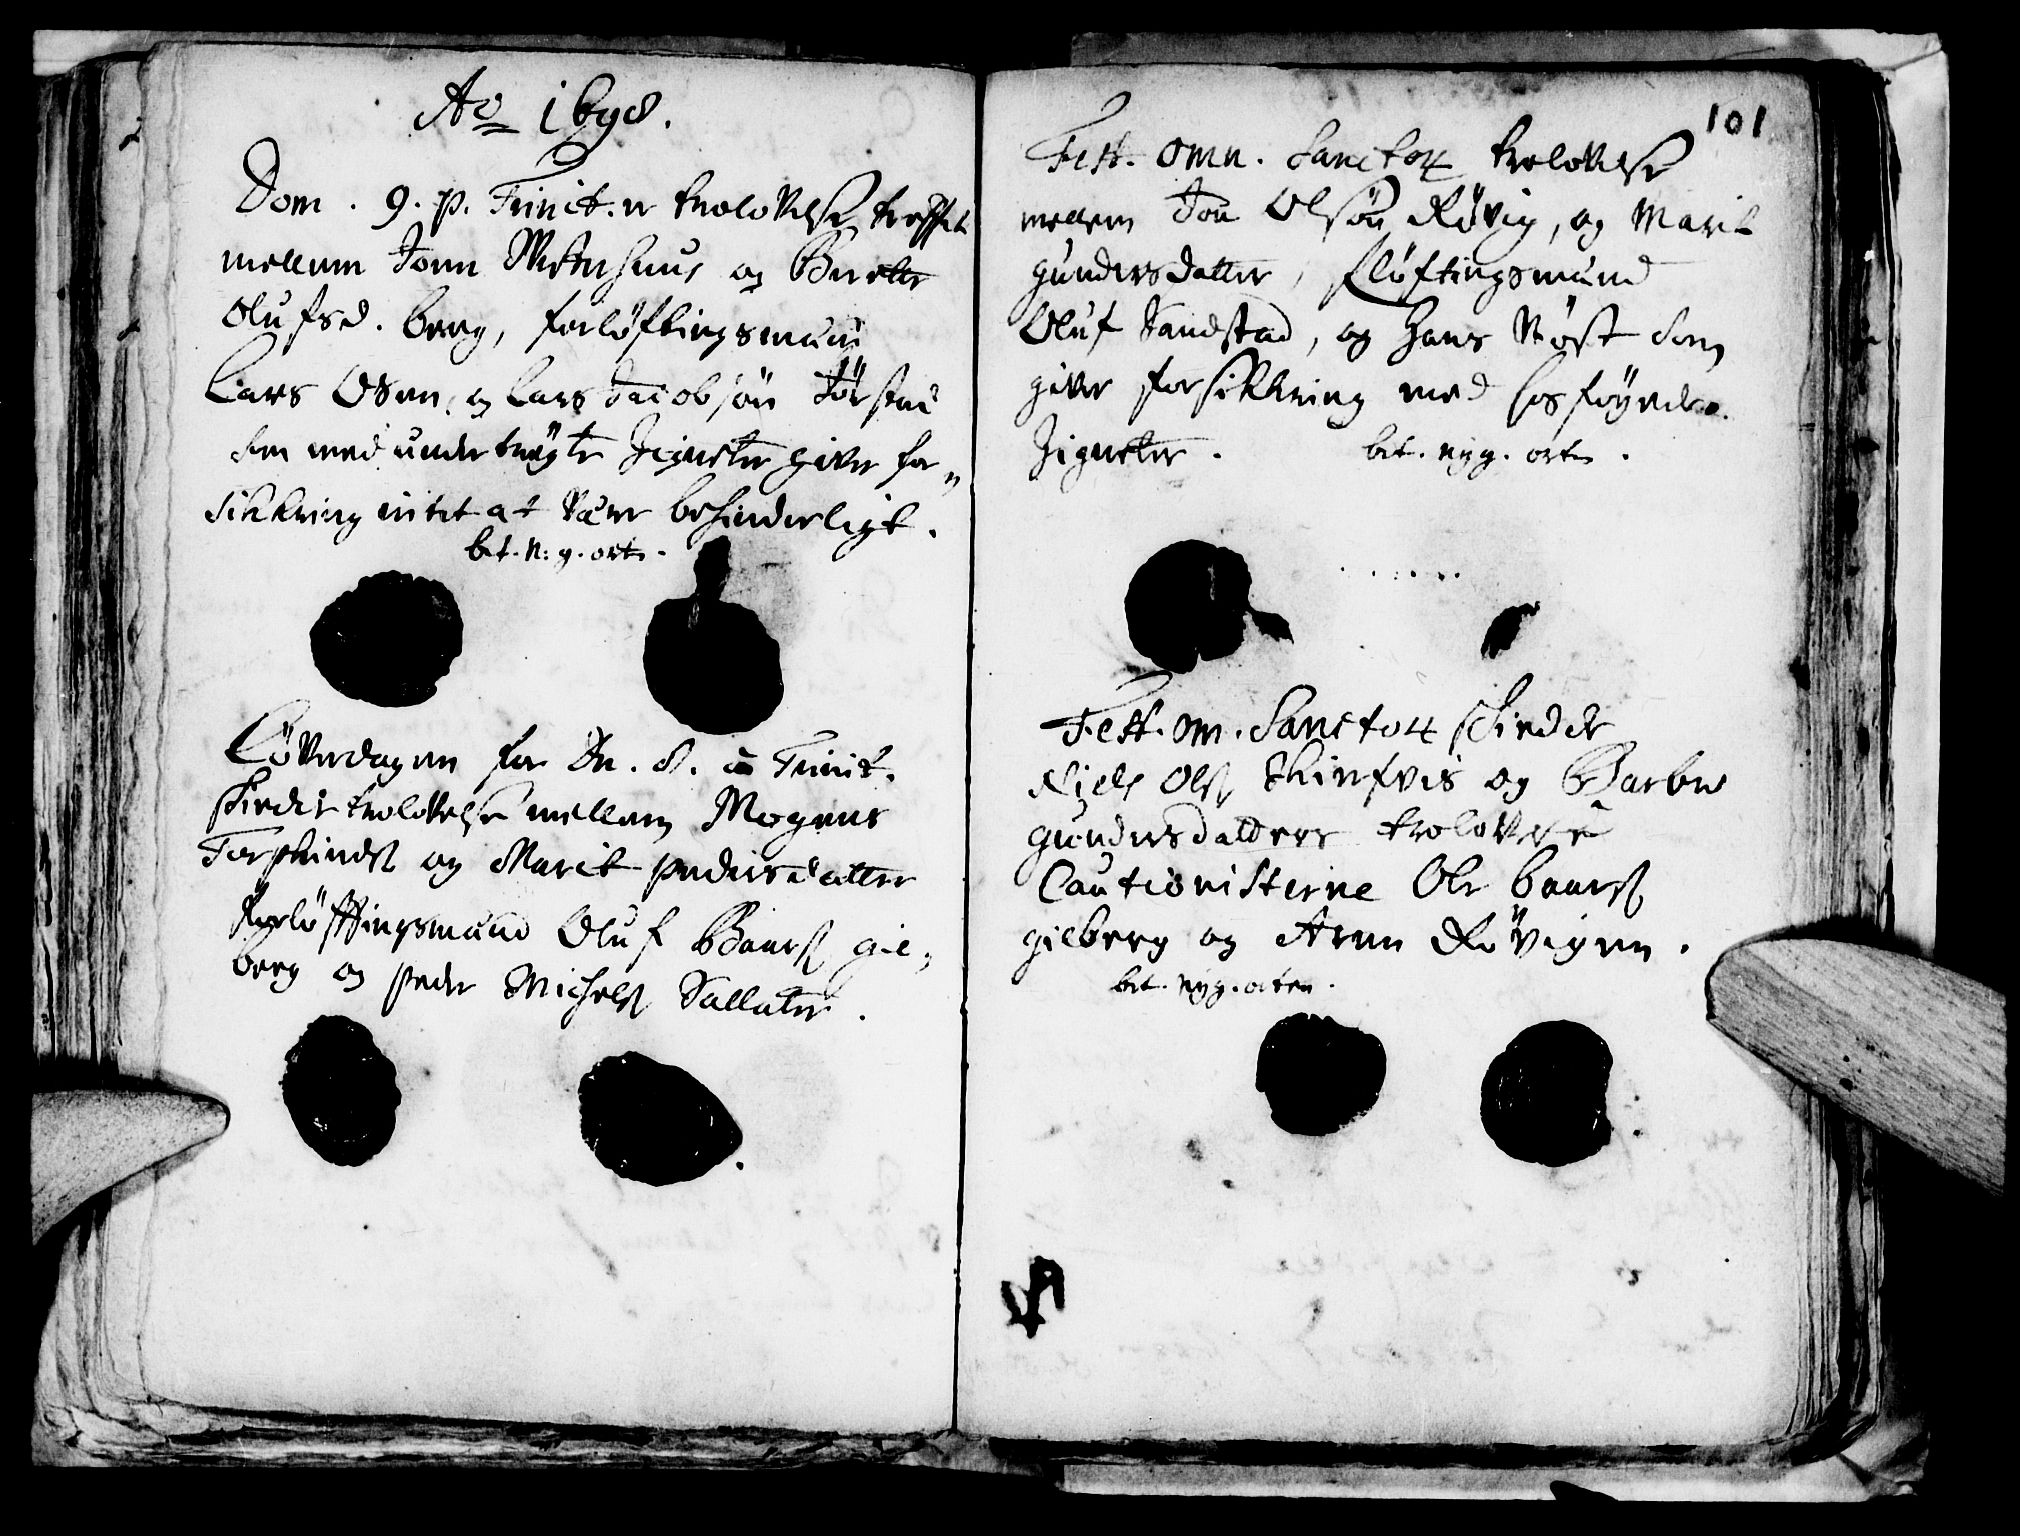 Ao 1698.
Dom. 9. p. Trinit. er trolovelse treffet
mellem Jonn Melhuus og Berette
Olufsd. berg, forløftingsmænd
Lars Osen, og Lars Jacobsøn Tørstad
som med undertrøgte Zigneter giver for„
sikkring intet at være behinderligt.
bet. n: g. orte.
Løverdagen for Dn. 8. a Trinit.
skeede trolovelse mellem Mogens
Torphinds og Marit pedersdatter
forløfftingsmænd Oluf Baars gie„
berg og peder Michels Vallater.
101
Fest. omn. Sanctor trolovelse
mellem Jon Olsøn Røvig, og Marit
gundersdatter, fløftingsmænd
Oluf Sandstad, og Hans Røst som
giver forsikkring med hosføyede
Zigneter. bet. nyg. orte.
Fest. om. Sanctor skeede
Niels Ols Skinfvis og Barbro
gundersdatters trolovelse
Cautionisterne Ole baars
gieberg og Aren Røvigen.
bet. nyg. orten.